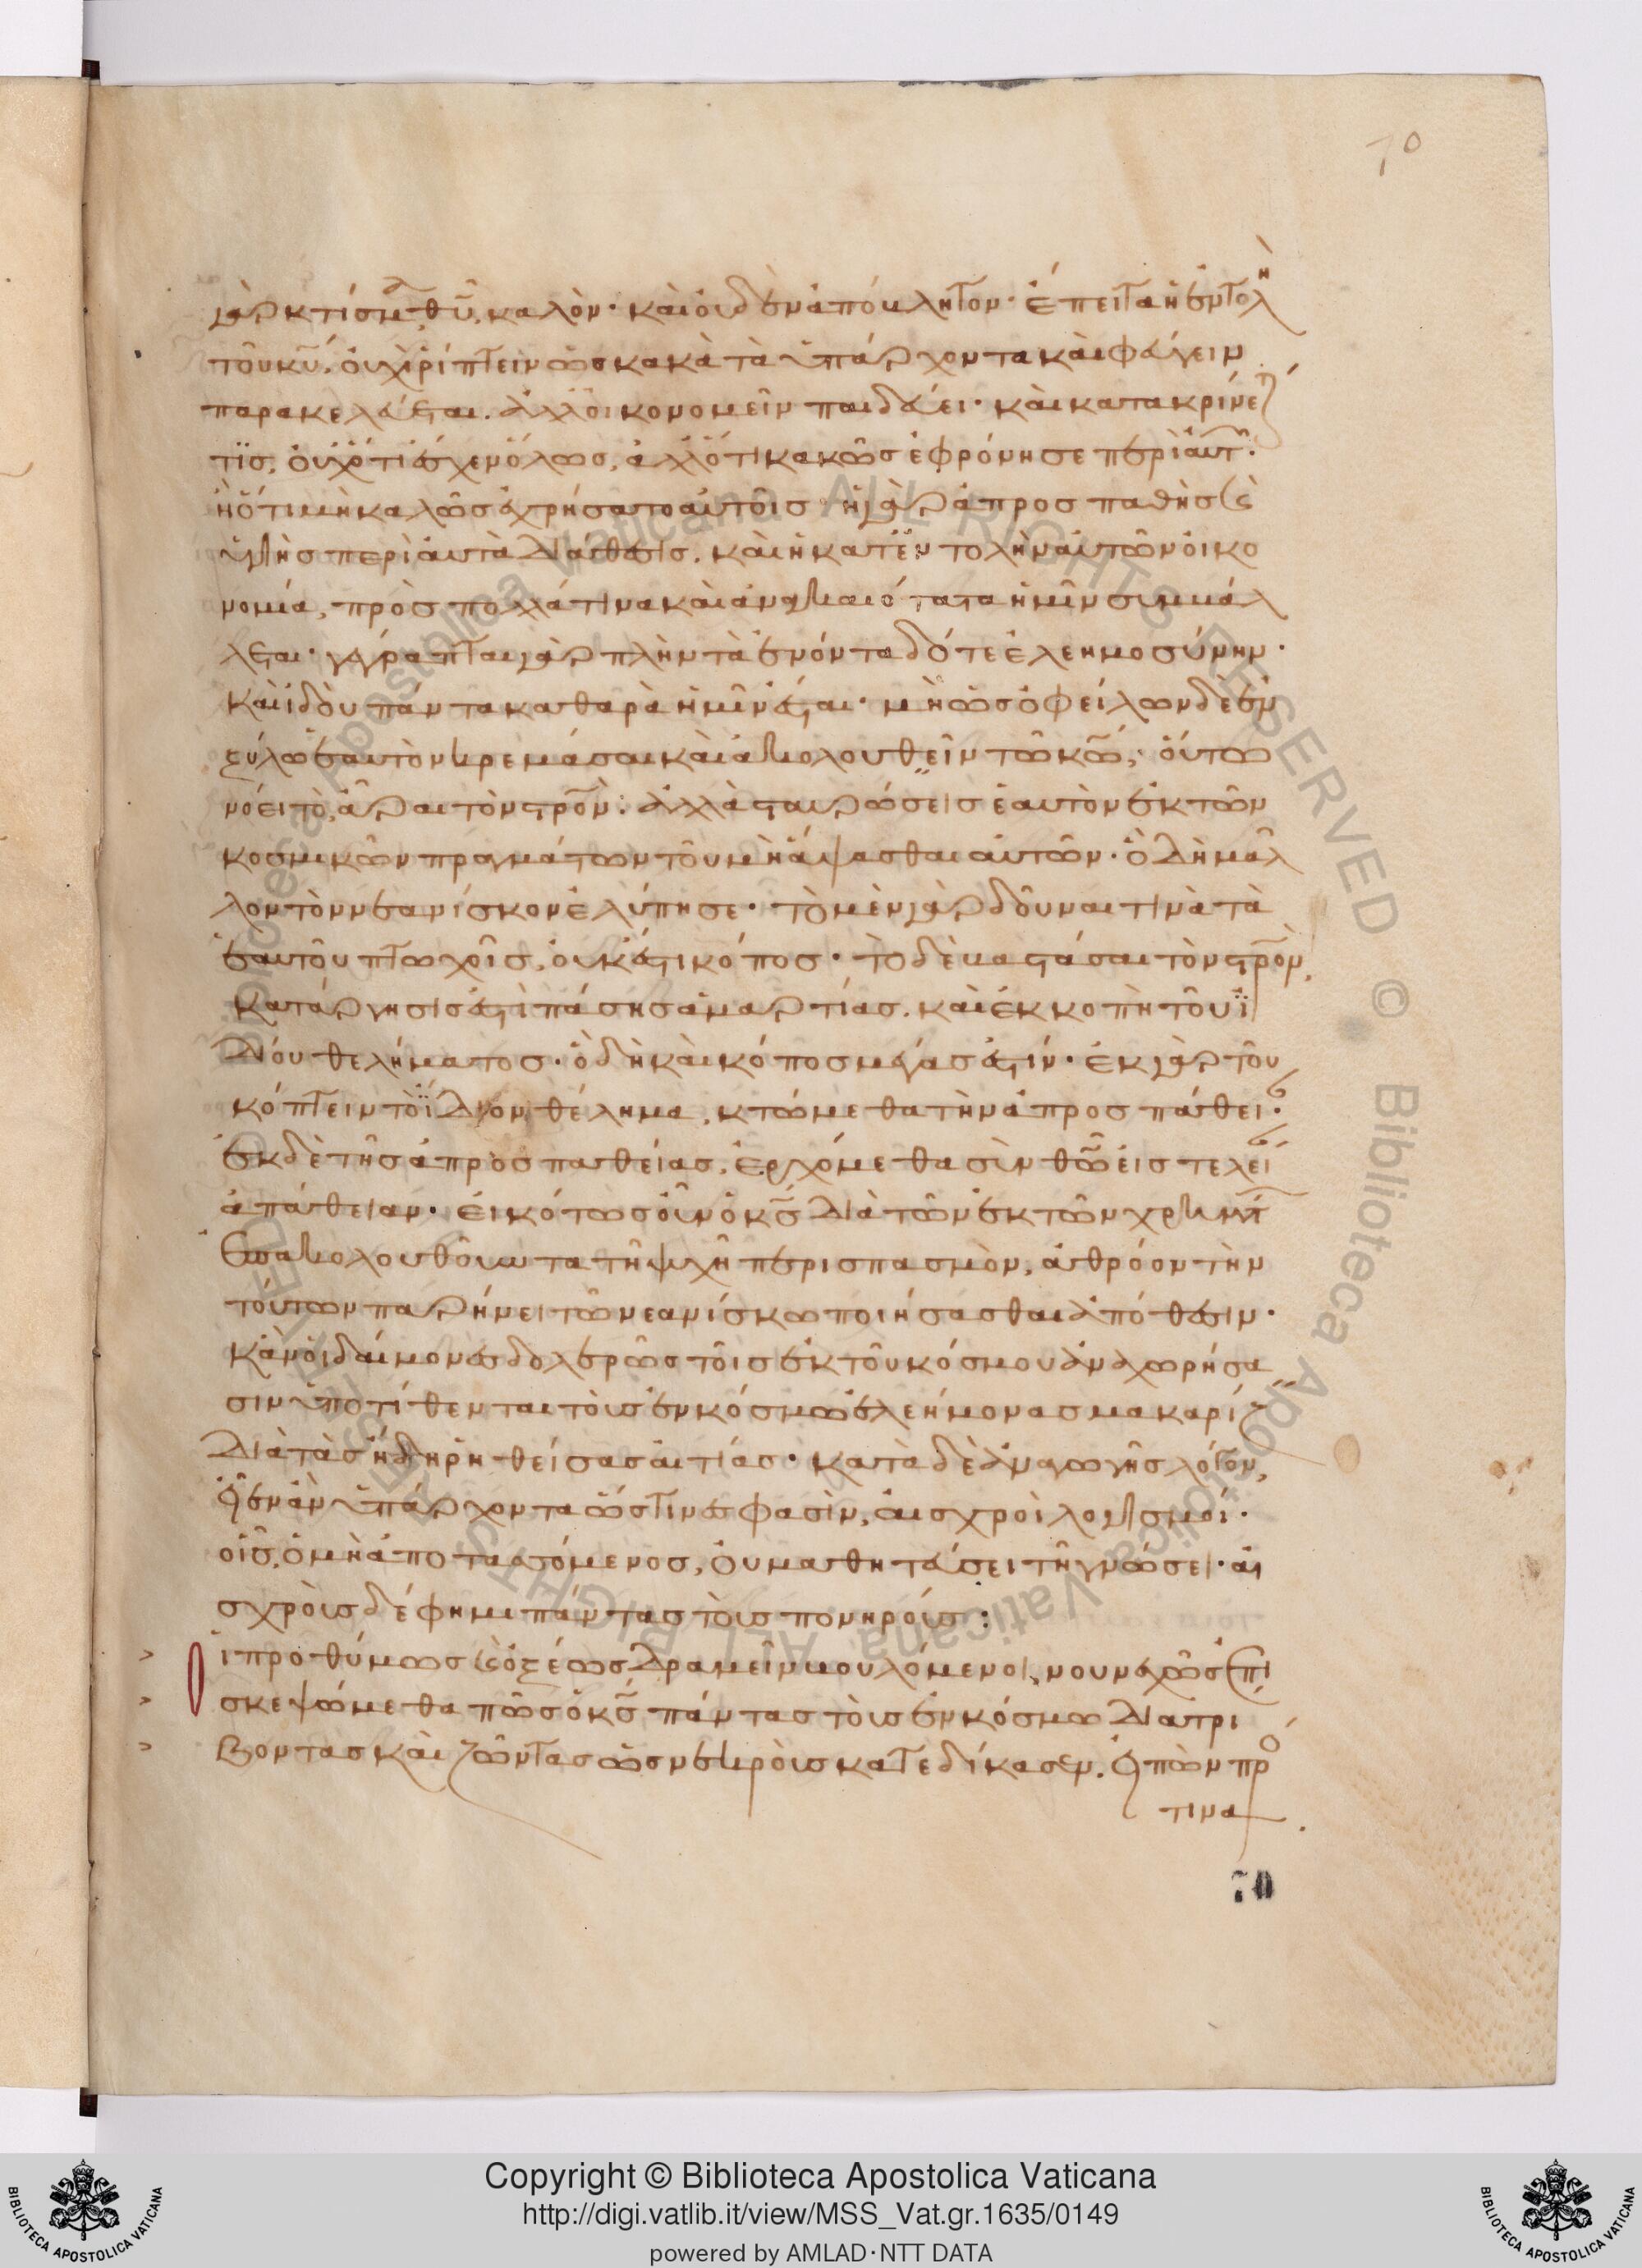 70
γὰρ κτίσμα θῦ καλὸν· καὶ οὐδὲν ἀπόβλητον· ἔπειτα ἡ ἐντολὴ
τοῦ κῦ, οὐχὶ ῥίπτειν ὡς κακὰ τὰ ὑπάρχοντα καὶ φάγειν
παρακελεύεται. ἀλλ' οἰκονομεῖν παιδεύει· καὶ κατακρίνε
τϊς, οὐχ ὅτι ἔσχεν ὅλως, ἀλλ' ὅτι κακῶς ἐφρόνησε περὶ αὐτ·
ἢ ὅτι μὴ καλῶς ἐχρήσατο αὐτοῖς· ἡ γὰρ ἀπροσπαθὴς καὶ
ὑγιὴς περὶ αὐτὰ διάθεσις. καὶ ἡ κατ' ἐντολὴν αὐτῶν οἰκο
νομία, πρὸς πολλά τινα καὶ ἀναγκαιότατα ἡμῖν συμβάλ
λεται· γέγραπται γὰρ πλὴν τὰ ἐνόντα δότε ἐλεημοσύνην·
καὶ ἰδοὺ πάντα καθαρὰ ἡμῖν ἔσται· μὴ ὡς ὀφείλων δὲ ἐν
ξύλω ἑαυτὸν κρεμάσαι καὶ ἀκολουθεῖν τῶ κῶ, οὕτω
νόει τὸ, ἆραι τὸν στρὸν· ἀλλὰ σταυρώσεις ἑαυτὸν ἐκ τῶν
κοσμικῶν πραγμάτων τοῦ μὴ ἅψασθαι αὐτῶν· ὃ δὴ μᾶλ
λον τὸν νεανίσκον ἐλύπησε· τὸ μὲν γὰρ δοῦναι τινὰ τὰ
ἑαυτοῦ πτωχοῖς, οὐκ ἔστι κόπος· τὸ δὲ βαστάσαι τὸν στρὸν,
κατάργησις ἐστὶ πάσης ἁμαρτίας. καὶ ἐκκοπὴ τοῦ ἰ
δίου θελήματος· ὃ δὴ καὶ κόπος μέγας ἐστίν· ἐκ γὰρ τοῦ
κόπτειν τὸ ἴδιον θέλημα, κτώμεθα τὴν ἀπροσπάθει·
ἐκ δὲ τῆς ἀπροσπαθείας, ἐρχόμεθα σὺν θῶ εἰς τελεί
ἀπάθειαν· εἰκότως οὖν ὁ κς διὰ τῶν ἐκ τῶν χρημτ
ἐπακολουθοῦντα τῆ ψυχῆ περισπασμὸν, ἀθρόον τὴν
τούτων παρήνει τῶ νεανίσκω ποιήσασθαι ἀπόθεσιν·
κἀν οἱ δαίμονες δολερῶς τοῖς ἐκ τοῦ κόσμου ἀναχωρήσα
σιν ὑποτίθενται τοὺς ἐν κόσμω ἐλεήμονας μακαρίζ
διὰ τὰς ἤδη ῥηθείσας αἰτίας· κατὰ δὲ ἀναγωγῆς λόγον,
εἶεν ἂν ὑπάρχοντα ὥς τινες φασὶν, αἰσχροὶ λογισμοί·
οἷς, ὁ μὴ ἀποτασσόμενος, οὐ μαθητεύσει τῆ γνώσει· αἰ
σχροὺς δέ φημι πάντας τοὺς πονηρούς:
Οἱ προθύμως καὶ ὀξέως δραμεῖν βουλόμενοι, νουνεχῶς ἐπι
σκεψώμεθα πῶς ὁ κς πάντας τοὺς ἐν κόσμω διατρί
βοντας καὶ ζῶντας ὡς νεκροὺς κατεδίκασεν. εἰπὼν πρό
τινα
70
Copyright © Biblioteca Apostolica Vaticana
http://digi.vatlib.it/view/MSS_Vat.gr.1635/0149
powered by AMLAD·NTT DATA
BIBLIOTECA APOSTOLICA VATICANA
BIBLIOTECA APOSTOLICA VATICANA